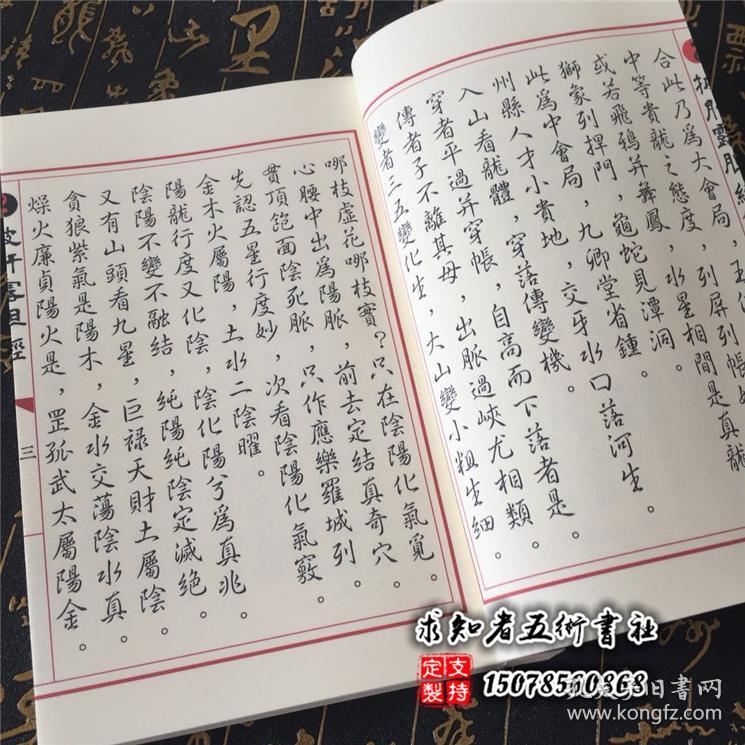 合此乃為大會局，列屏列帳
中等貴龍之態度，水星相間是真龍
或若飛鴉并舞鳳，龜蛇見潭洞。
獅象列捍門，九卿堂省鍾。
此為中會局，交牙水口落河生。
州縣人才小貴地，穿落傳變機。
入山看龍體，自高而下落者是。
穿者平過并穿帳，出脈過峽尤相類。
傳者子不離其母，大山變小粗生細。
變者二五變化生，
哪枝虛花哪枝實？只在陰陽化氣覓。
心腰中出為陽脈，前去定結真奇穴。
貫頂飽面陰死脈，只作應樂羅城列。
先認五星行度妙，次看陰陽化氣竅。
金木火屬陽，土水二陰曜。
陽龍行度又化陰，陰化陽兮為真兆。
陰陽不變不融結，純陽純陰定滅絕。
又有山頭看九星，巨祿天財土屬陰。
貪狼紫氣是陽木，金水交蕩陰水真。
燥火廉貞陽火是，罡孤武太屬陽金。
三
求知者五術書社
支持定製
15078560868
旧書网
www.kongfz.com